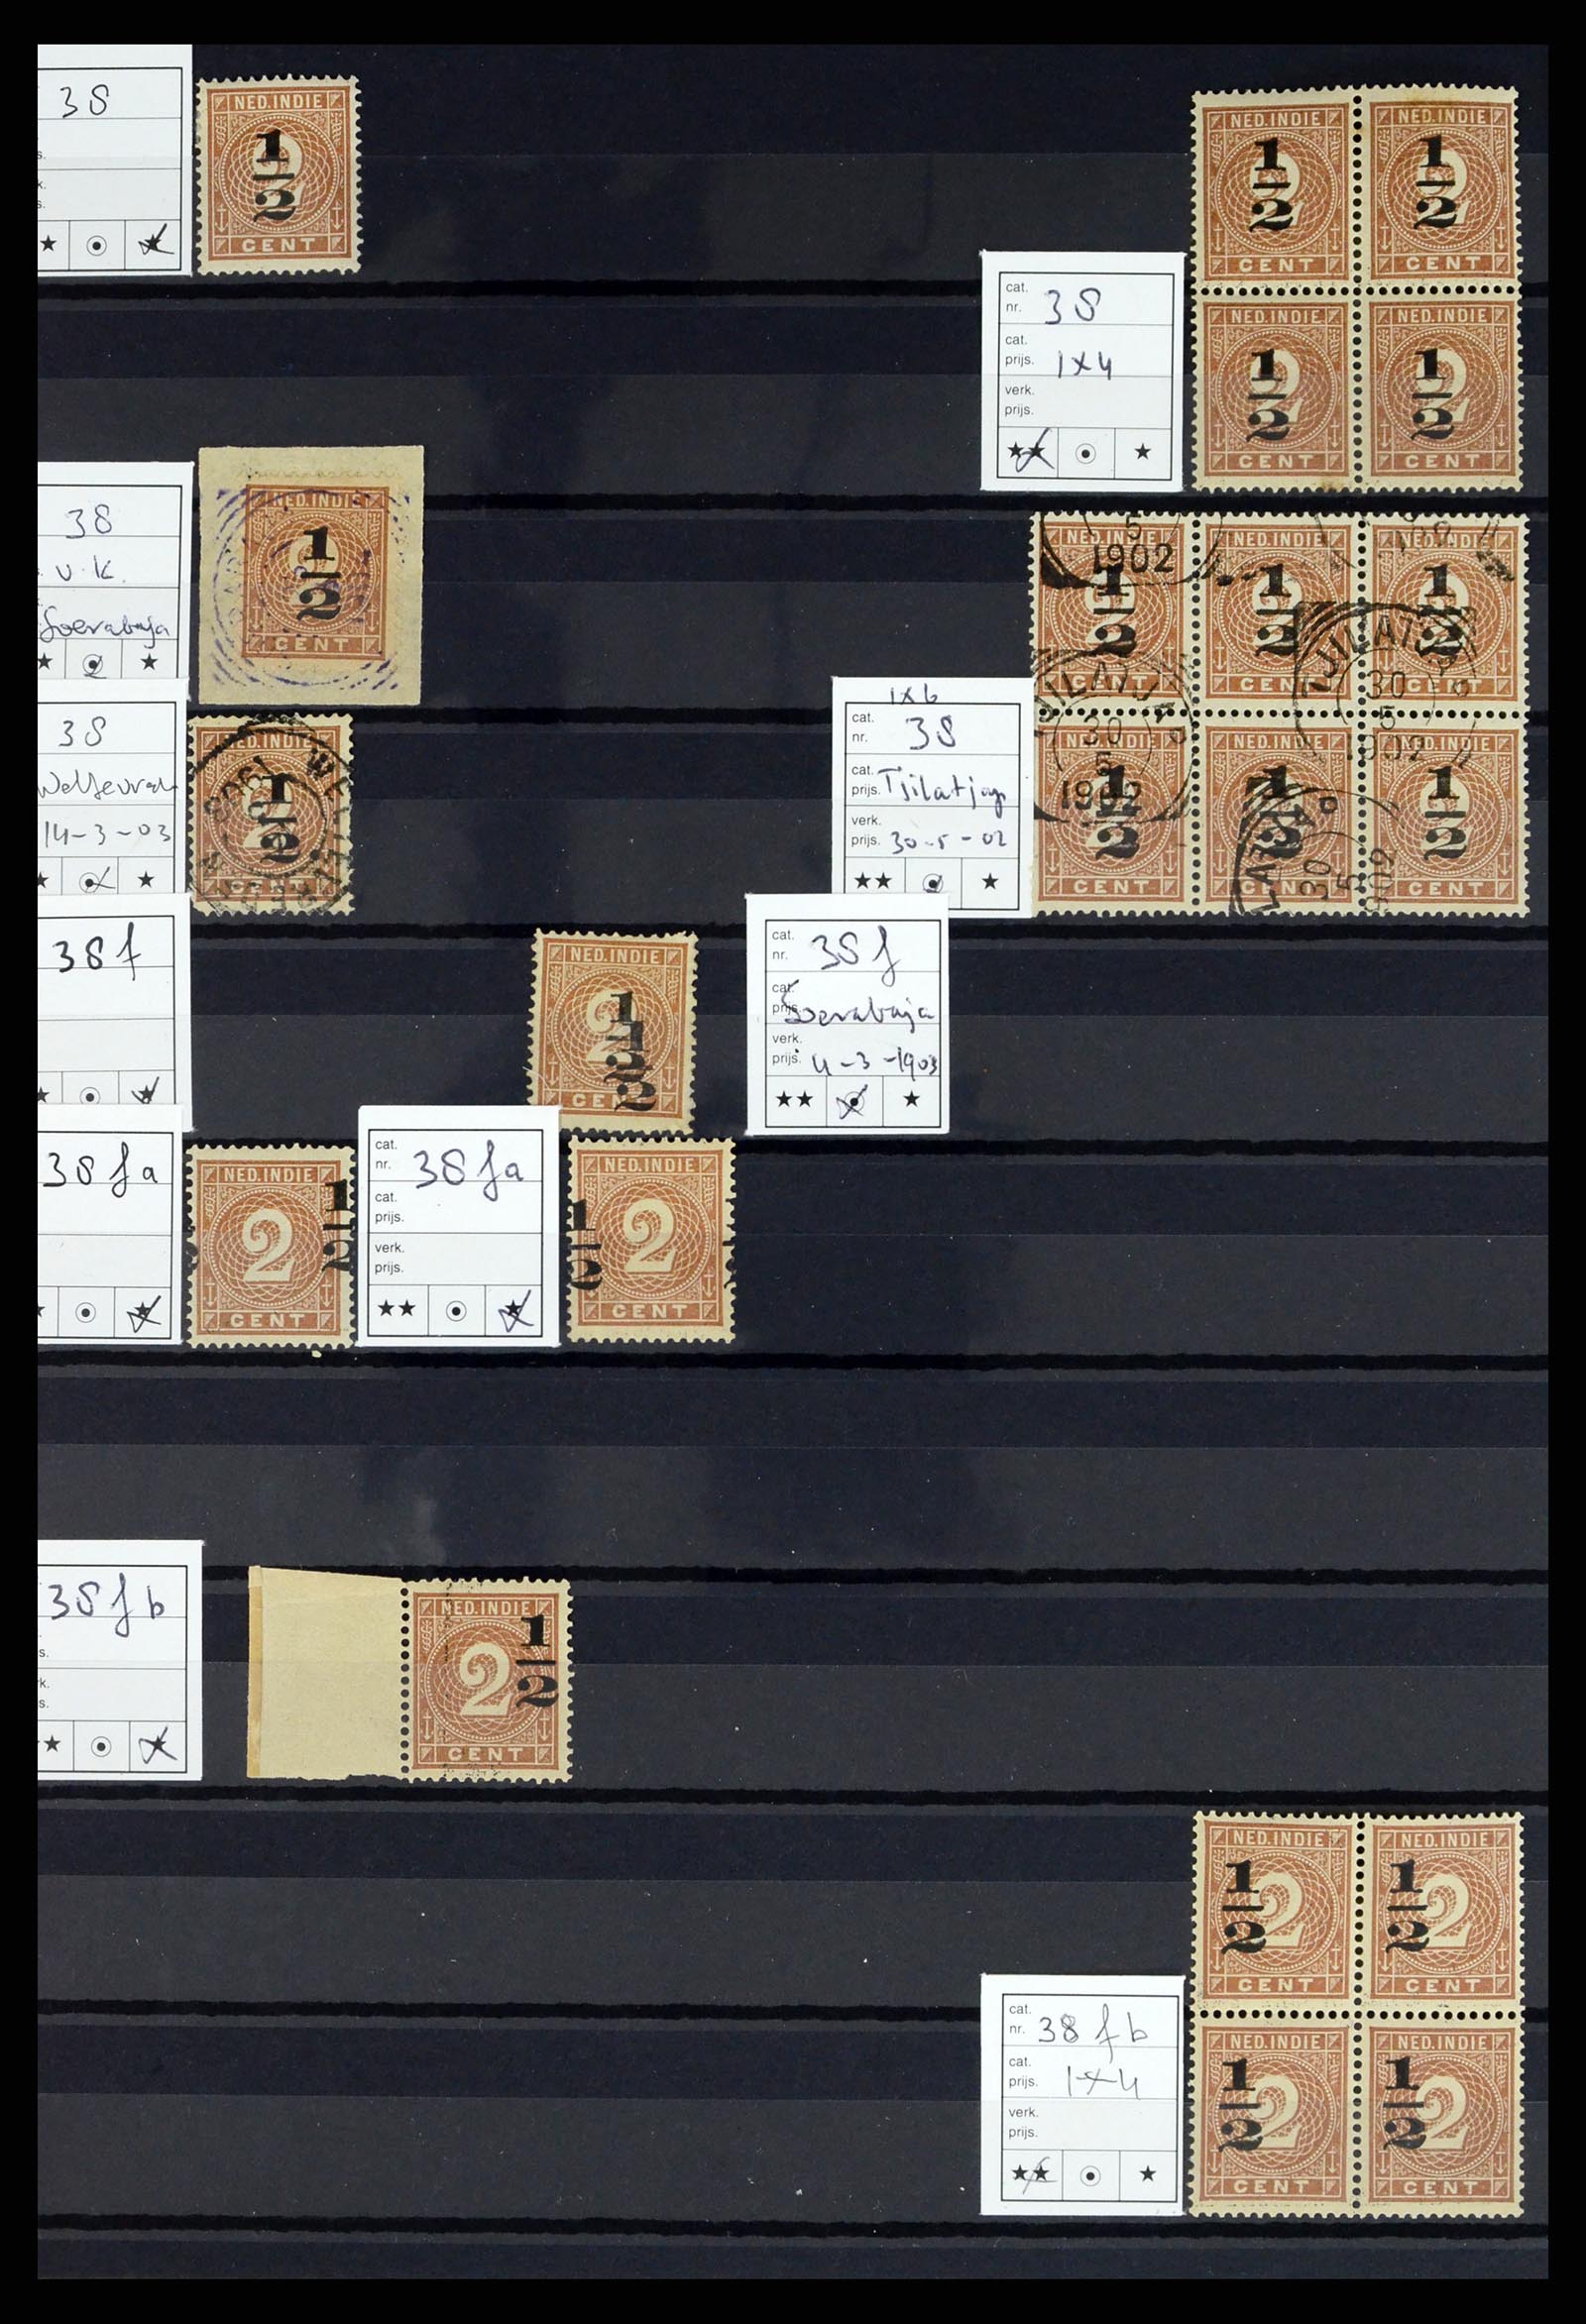 38
s.
k.
s.
NED.INDIE
1/2
CENT
NED.INDIE
1/2
CENT
NED.INDIE
1/2
CENT
NED.INDIE
1/2
CENT
NED.INDIE
1/2
CENT
cat.
nr. 38
cat.
prijs. 1x4
verk.
prijs.
38
v.k.
Soerabaja
NED.INDIE
1/2
CENT
1x6
cat.
nr. 38
cat.
prijs. Tjilatjap
verk.
prijs. 30-5-02
NED.INDIE
5
1902
1/2
CENT
NED.INDIE
1/2
CENT
NED.INDIE
1/2
CENT
TJILATJAP
30
5
1902
NED.INDIE
1/2
CENT
TJILATJAP
30
5
1902
NED.INDIE
1/2
CENT
LATJAP
30
5
902
NED.INDIE
1/2
CENT
38
14-3-03
NED.INDIE
1/2
38 f
NED.INDIE
2
1/2
1/2
cat.
nr. 38 f
cat.
prijs. Soerabaja
verk.
prijs. 4-3-1903
38 fa
NED.INDIE
2
1/2
CENT
cat.
nr. 38 fa
cat.
prijs.
verk.
prijs.
NED.INDIE
1/2
2
CENT
38 f b
s.
k.
s.
NED.INDIE
2
1/2
CENT
NED.INDIE
1/2
2
CENT
NED.INDIE
1/2
2
CENT
NED.INDIE
1/2
2
CENT
NED.INDIE
1/2
2
CENT
cat.
nr. 38 f b
cat.
prijs. 1x4
verk.
prijs.